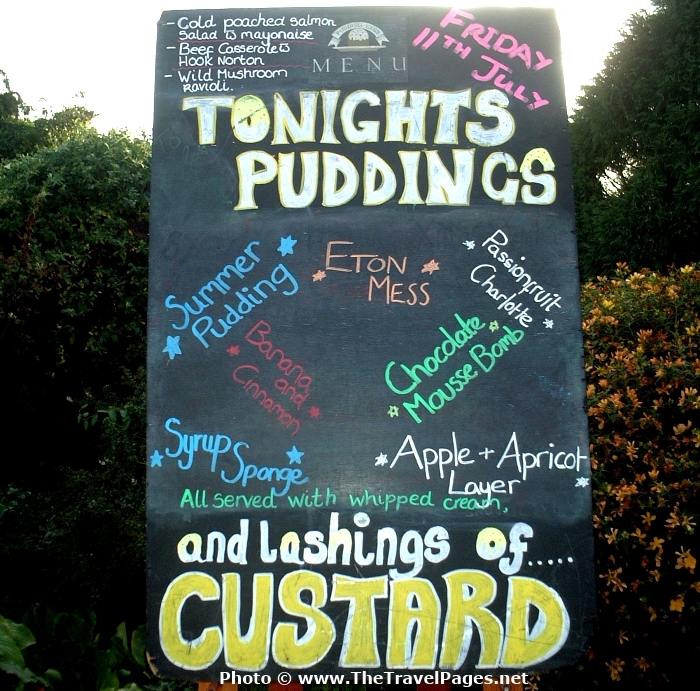 - Cold poached salmon
Salad is mayonaise
- Beef Casserole is
Hook Norton
- Wild Mushroom
Ravioli.
MENU
FRIDAY
11TH July
TONIGHTS
PUDDINGS
Summer
Pudding
ETON
MESS
Passionfruit
Charlotte
Banana
and
Cinnamon
Chocolate
Mousse Bomb
Syrup
Sponge
Apple + Apricot
Layer
All served with whipped cream,
and lashings of.....
CUSTARD
Photo © www.TheTravelPages.net